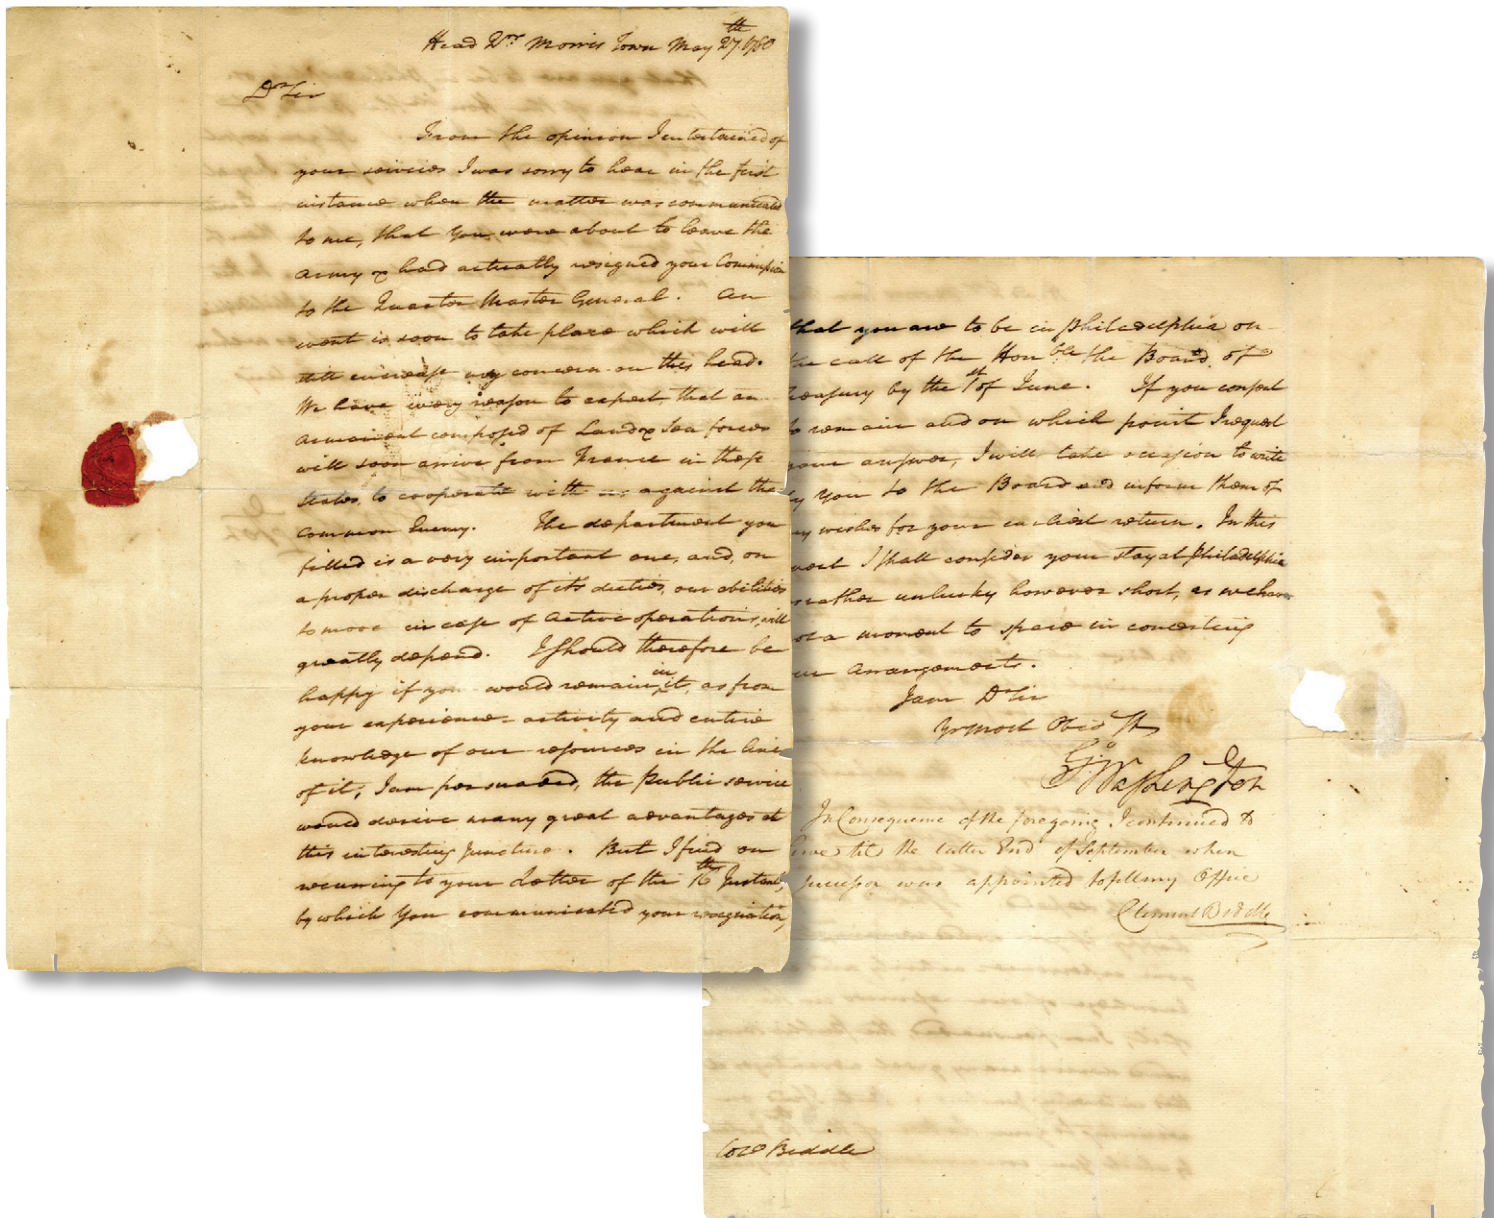 Head Qrs Morris Town May 27th 1780
Dr Sir
From the opinion I entertained of
your services I was sorry to hear in the first
instance when the matter was communicated
to me, that you were about to leave the
Army or had actually resigned your Commission
to the Quarter Master General. An
event is soon to take place which will
still encrease my concern on this head.
We have every reason to expect that an
armament composed of Land & Sea forces
will soon arrive from France in these
States, to cooperate with us against the
common Enemy. The department you
filled is a very important one, and, on
a proper discharge of its duties, our abilities
to move in case of active operations, will
greatly depend. I should therefore be
happy if you would remain in it, as from
your experience activity and entire
knowledge of our resources in the line
of it, I am persuaded, the public service
would derive many great advantages at
this interesting juncture. But I find on
recurring to your Letter of the 16th Instant,
by which you communicated your resignation,
that you are to be in Philadelphia on
the call of the Honble the Board of
Treasury by the 1st of June. If you consent
to remain and on which point I request
your answer, I will take occasion to write
by you to the Board and inform them of
my wishes for your earliest return. In this
event I shall consider your stay at Philadelphia
rather unlucky however short, as we have
not a moment to spare in concerting
our arrangements.
I am Dr Sir
Yr most Obed St
Go Washington
In Consequence of the foregoing I continued to
serve till the latter End of September when
successor was appointed to fill my Office
Clement Biddle
Colo Biddle